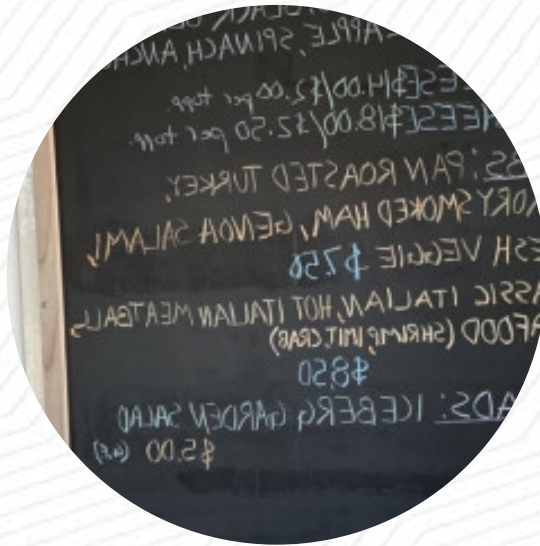 BLACK
EAPPLE, SPINACH, ANCH
EESE $14.00/$2.00 per topp.
HEESE $18.00/$2.50 per topp.
BS: PAN ROASTED TURKEY,
KORY SMOKED HAM, GENOA SALAMI,
ESH VEGGIE $7.50
ASSIC ITALIAN, HOT ITALIAN MEATBALL,
AFOOD (SHRIMP, IMIT. CRAB)
$8.50
ADS: ICEBERG GARDEN SALAD
$5.00